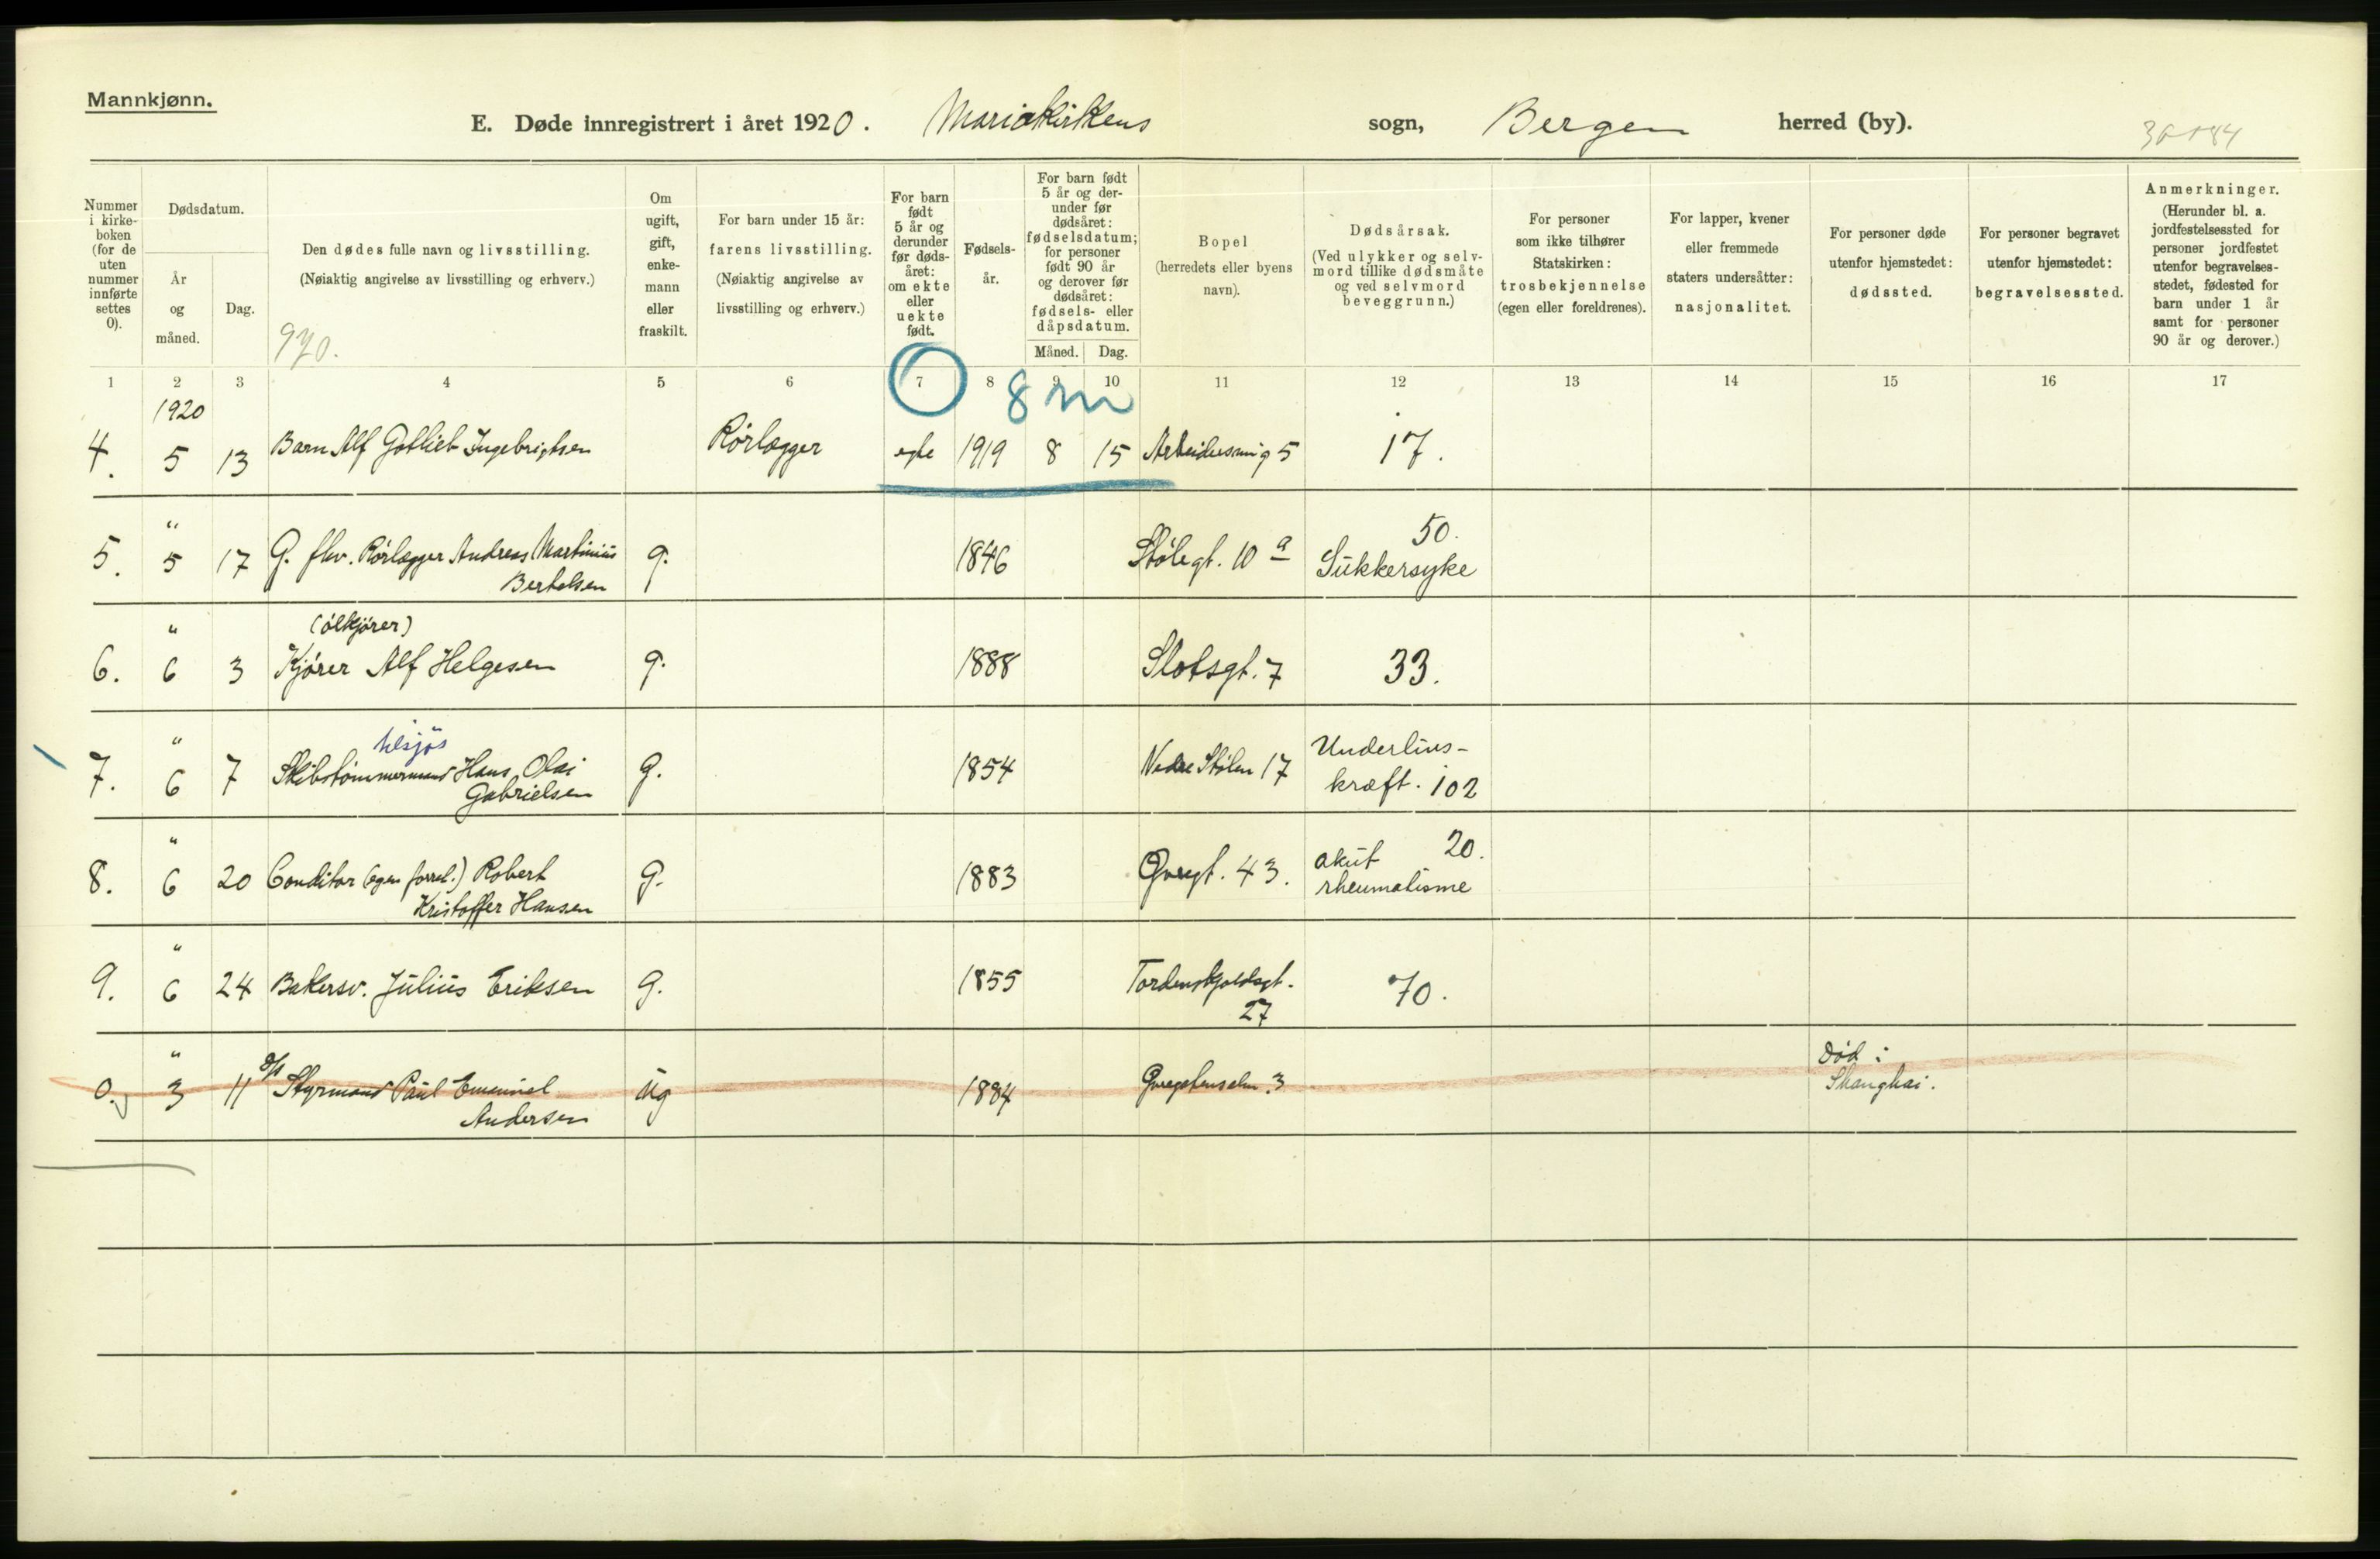 Mannkjønn.
E. Døde innregistrert i året 1920. Mariakirkens sogn, Bergen herred (by).
Nummer i kirke- boken (for de uten nummer innførte settes 0).
Dødsdatum.
År og måned.
Dag.
Den dødes fulle navn og livsstilling.
(Nøiaktig angivelse av livsstilling og erhverv.)
970.
Om ugift, gift, enke- mann eller fraskilt.
For barn under 15 år: farens livsstilling.
(Nøiaktig angivelse av livsstilling og erhverv.)
For barn født 5 år og derunder før døds- året: om ekte eller uekte født.
Fødsels- år.
For barn født 5 år og der- under før dødsåret: fødselsdatum; for personer født 90 år og derover før dødsåret: fødsels- eller dåpsdatum.
Måned. Dag.
Bopel
(herredets eller byens navn).
Dødsårsak.
(Ved ulykker og selv- mord tillike dødsmåte og ved selvmord beveggrunn.)
For personer som ikke tilhører Statskirken: trosbekjennelse (egen eller foreldrenes).
For lapper, kvener eller fremmede staters undersåtter: nasjonalitet.
For personer døde utenfor hjemstedet: dødssted.
For personer begravet utenfor hjemstedet: begravelsessted.
Anmerkninger.
(Herunder bl. a. jordfestelsessted for personer jordfestet utenfor begravelses- stedet, fødested for barn under 1 år samt for personer 90 år og derover.)
1 2 3 4 5 6 7 8 9 10 11 12 13 14 15 16 17
8 m
1920
4. 5 13 Barn Alf Gotlieb Ingebrigtsen Rørlægger egte 1919 8 15 5 17.
" 50.
5. 5 17 G. fhv. Rørlægger Andreas Martinius g. 1846 Stølegt. 10 a Sukkersyke
Bertelsen
" (ølkjører)
6. 6 3 Kjører Alf Helgesen g. 1888 Slotsgt. 7 33.
" tilsjøs Underlivs-
7. 6 7 Skibstømmermand Hans Olai G. 1854 Nedre Stølen 17 kræft. 102
Gabrielsen
" 20.
8. 6 20 Conditor (egen forret.) Robert G. 1883 Øvregt. 43. akut rheumatisme
Kristoffer Hansen
"
9. 6 24 Bakersv. Julius Eriksen G. 1855 Tordenskjoldsgt. 70.
27
" Død i
0. 3 11 Styrmand Paul Emanuel ug 1884 3 Shanghai.
Andersen